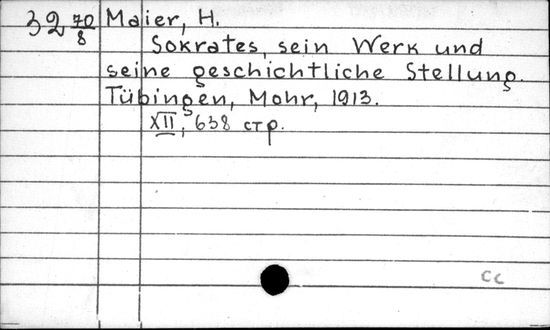 32 70/8 Maier, H.
Sokrates, sein Werk und
seine geschichtliche Stellung.
Tübingen, Mohr, 1913.
XII, 638 стр.
Cc